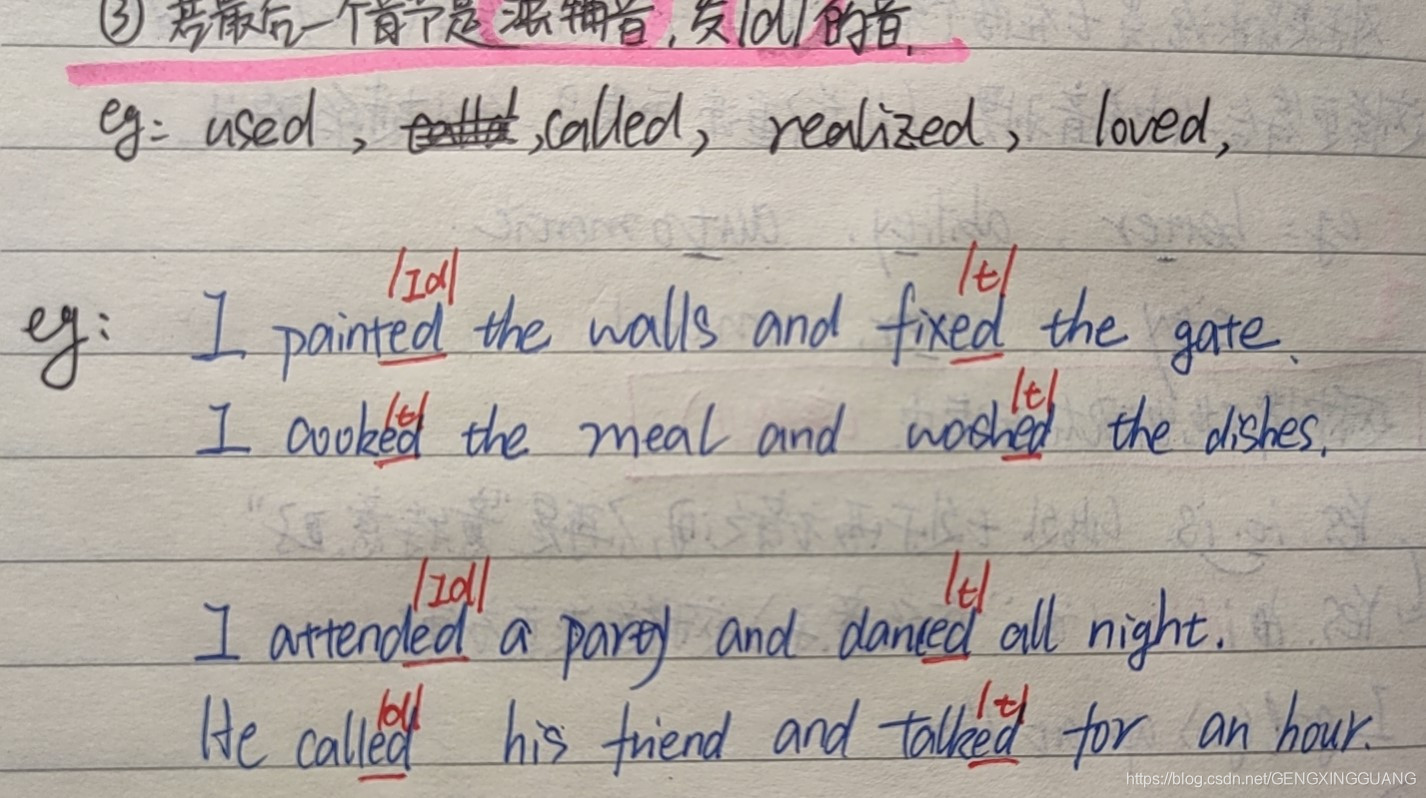 ③ 若最后一个音节是浊辅音,发/d/的音.
eg: used, called, realized, loved,
/ɪd/ /t/
eg: I painted the walls and fixed the gate.
/t/ /t/
I cooked the meal and washed the dishes.
/ɪd/ /t/
I attended a party and danced all night.
/d/ /t/
He called his friend and talked for an hour.
https://blog.csdn.net/GENGXINGGUANG